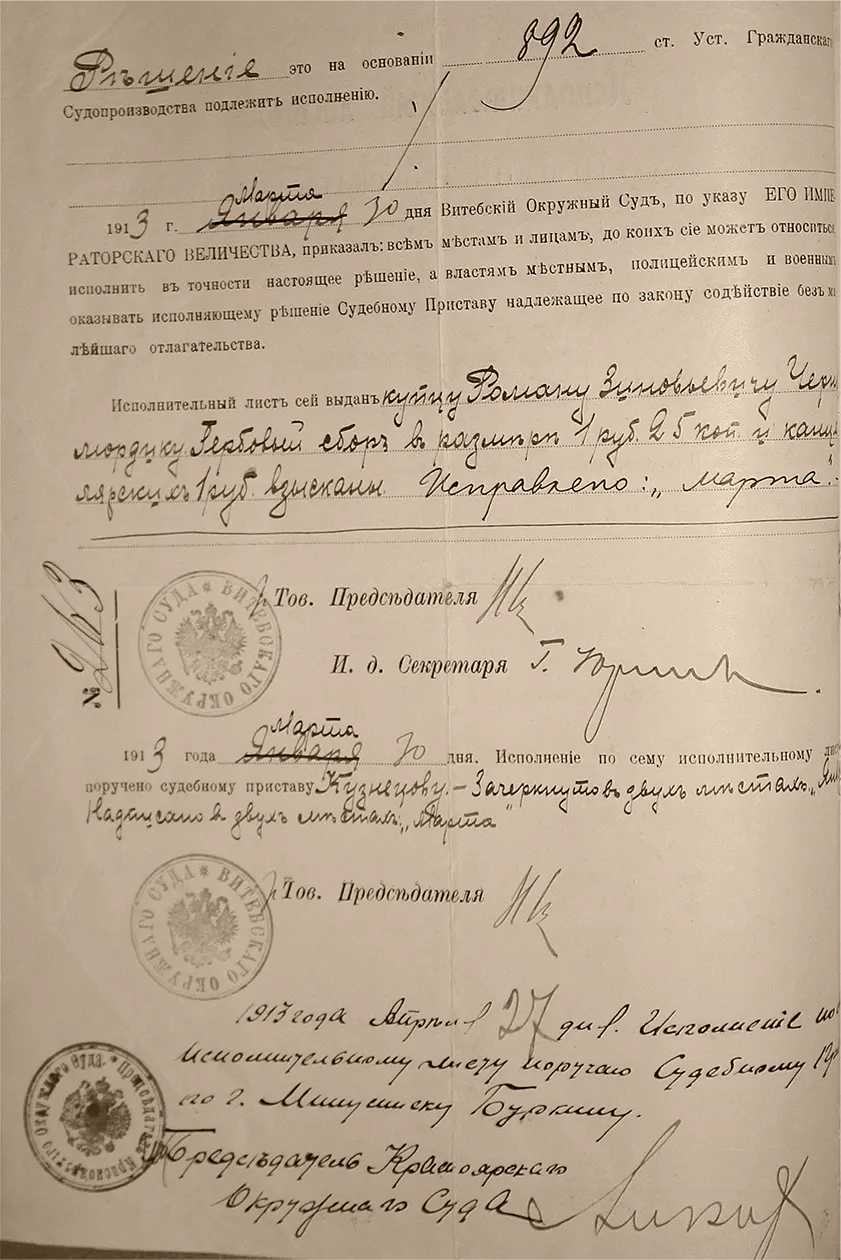 Рѣшеніе это на основаніи 892 ст. Уст. Гражданскаг
Судопроизводства подлежитъ исполненію.
Марта
1913 г. Января 30 дня Витебскій Окружный Судъ, по указу ЕГО ИМПЕ-
РАТОРСКАГО ВЕЛИЧЕСТВА, приказалъ: всѣмъ мѣстамъ и лицамъ, до коихъ сіе можетъ относиться
исполнить въ точности настоящее рѣшеніе, а властямъ мѣстнымъ, полицейскимъ и военным
оказывать исполняющему рѣшеніе Судебному Приставу надлежащее по закону содѣйствіе безъ м
лѣйшаго отлагательства.
Исполнительный листъ сей выданъ купцу Роману Зиновьевичу Черно
мордику. Гербовый сборъ в размѣрѣ 1 руб. 25 коп. и канце
лярскихъ 1 руб. взысканы. Исправлено: „Марта".
№ 263
ВИТЕБСКАГО ОКРУЖНАГО СУДА
Тов. Предсѣдателя
И. д. Секретаря Г.
Марта
1913 года Января 30 дня. Исполненіе по сему исполнительному лис
поручено судебному приставу Кузнецову. — Зачеркнуто въ двухъ мѣстахъ „Янв
Надписано в двухъ мѣстахъ: „Марта"
ВИТЕБСКАГО ОКРУЖНАГО СУДА
Тов. Предсѣдателя
1913 года Апрѣля 27 дня. Исполненіе по
исполнительному листу поручаю Судебному Пр
по г. Минусинску Буркину.
Предсѣдатель Красноярскаго
Окружнаго Суда
Предсѣдатель Красноярскаго Окружнаго Суда.